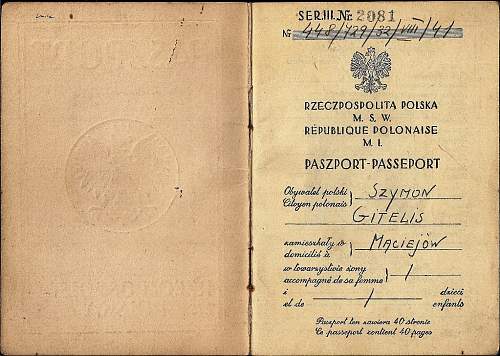 SER.III. № 2081
№ 448/429/32/VIII/41
RZECZPOSPOLITA POLSKA
M. S. W.
RÉPUBLIQUE POLONAISE
M. I.
PASZPORT-PASSEPORT
Obywatel polski
Citoyen polonais } SZYMON
GITELIS
zamieszkały w
domicilié à } MACIEJÓW
w towarzystwie żony
accompagné de sa femme } /
i / dzieci
et de enfants
Paszport ten zawiera 40 stronic
Ce passeport contient 40 pages